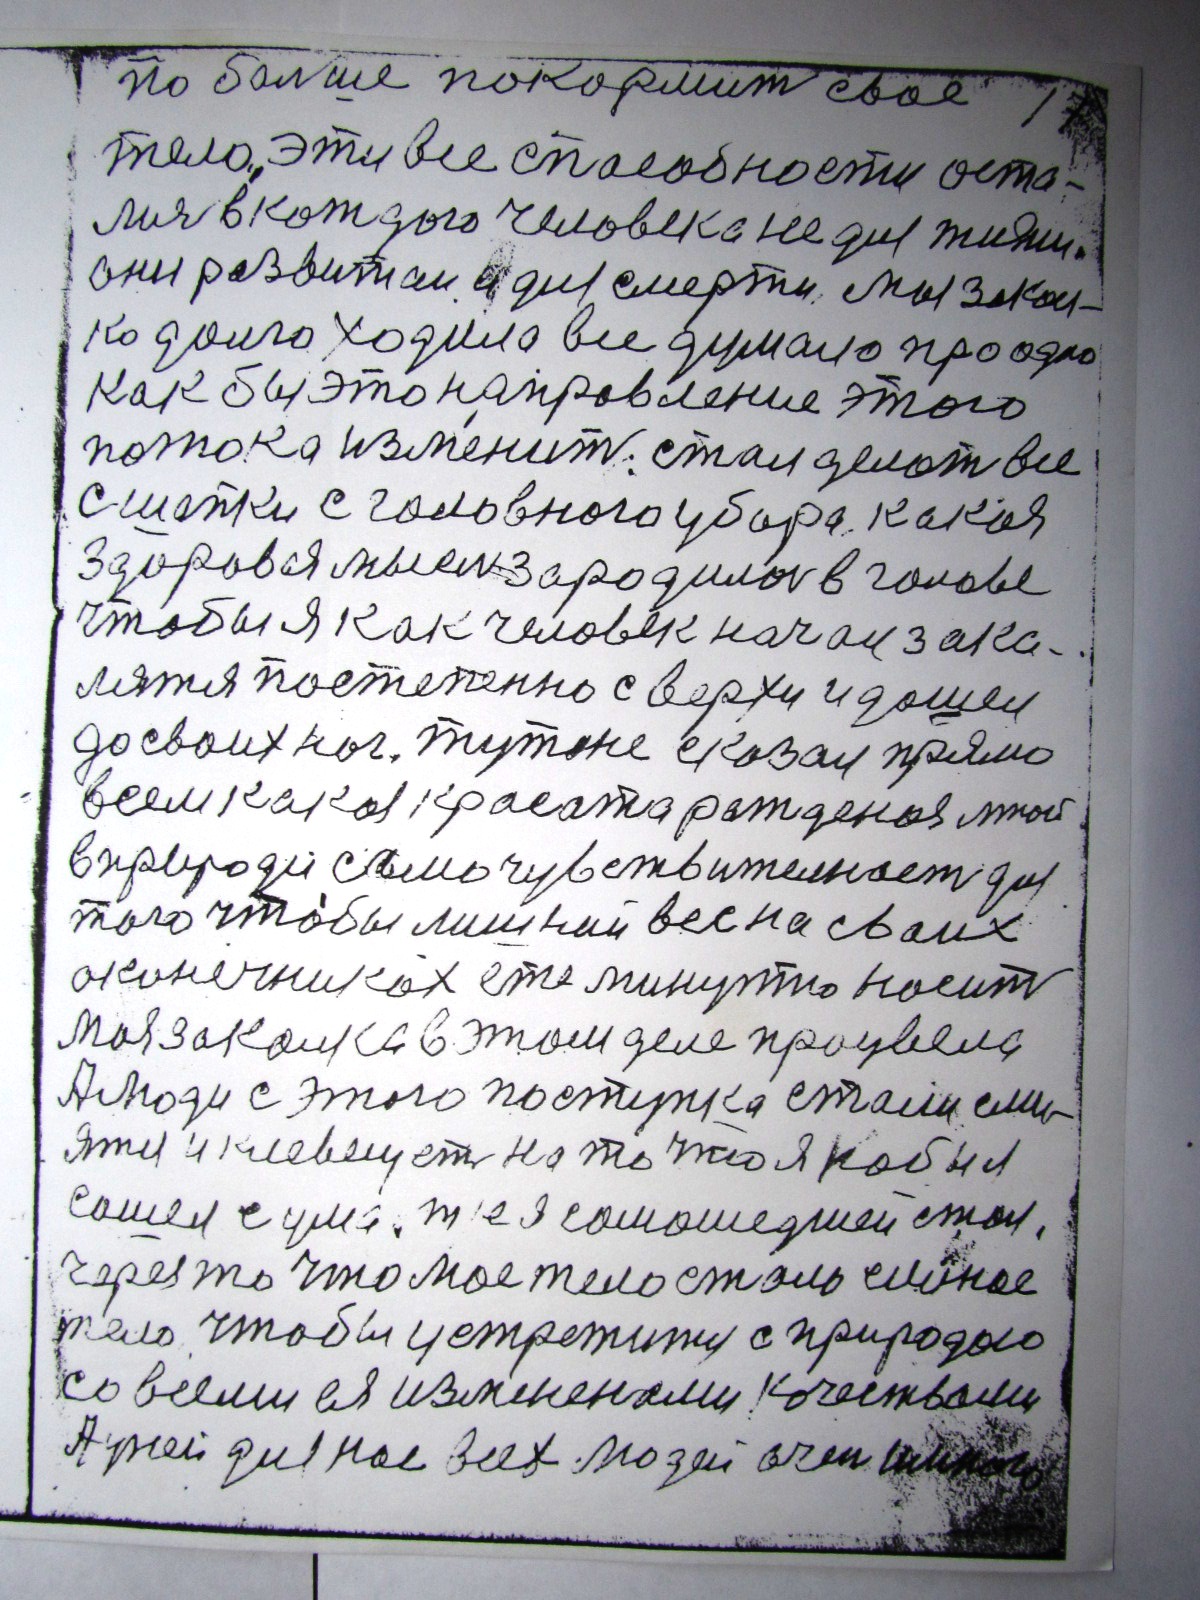 по болше покормит свое 17
тело. Эти все способности оста-
лис в каждого человека не для жизни.
они развитаи а для смерти. моя закал-
ка долго ходила все думала про одно
как бы это направление этого
потока изменит. стал делат все
с шапки с головного убора. какая
здоровая мысл зародилас в голове
чтобы я как человек начал зака-
лятся постепенно с верху и дошел
до своих ног. тут же сказал прямо
всем какая красата рождёная мной
в природи самочувствителност для
того чтобы лишний вес на своих
оконечниках ета минутно носит
моя закалка в этом деле процвела
А люди с этого поступка стали сми-
ятся и клевещет на то что я кобы я
сошел с ума. т е я самошедшей стал.
через то что мое тело стало силное
тело чтобы устретится с природою
со всеми ея изменеными качествами
А ужей для нас всех людей очен много